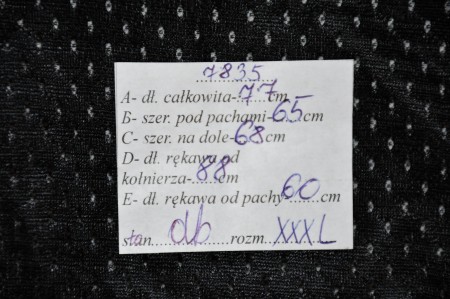 7835
A- dł. całkowita-77cm
B- szer. pod pachami-65cm
C- szer. na dole-68cm
D- dł. rękawa od
kołnierza-88cm
E- dł. rękawa od pachy-60cm
stan db rozm. XXXL